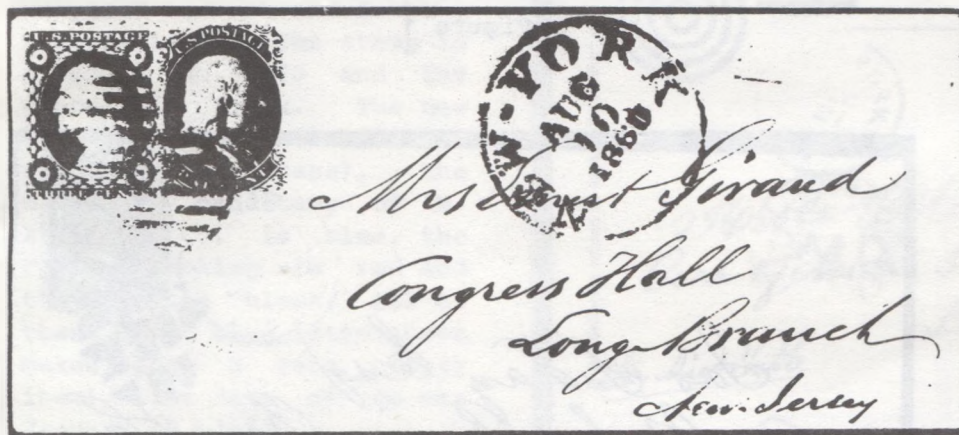 U.S. POSTAGE
U.S. POSTAGE
NEW-YORK
AUG
10
1860
Mrs Ernest Giraud
Congress Hall
Long Branch
New-Jersey